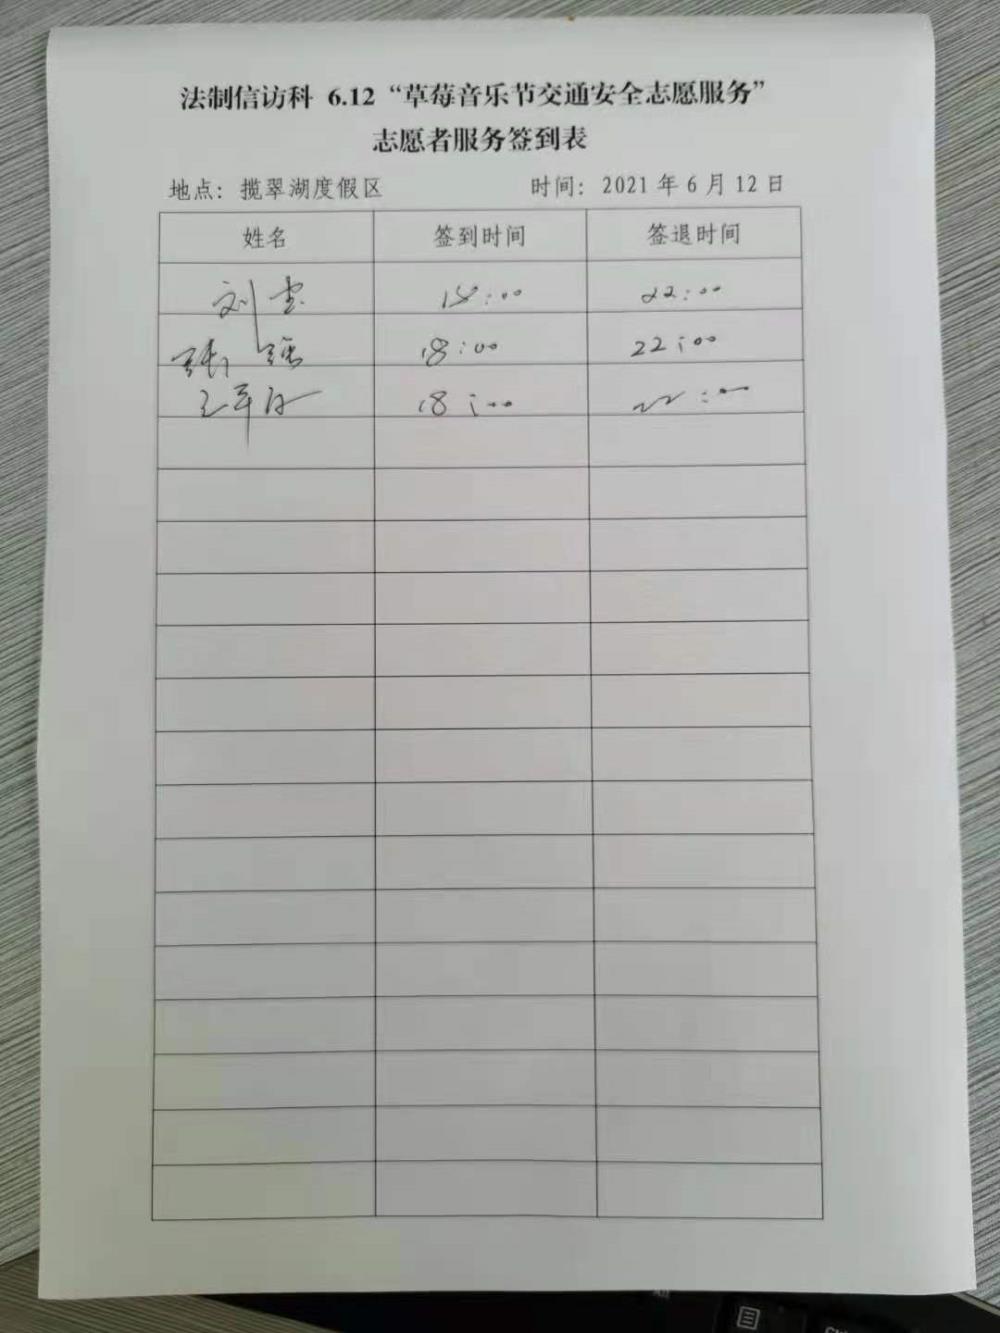 法制信访科 6.12“草莓音乐节交通安全志愿服务”
志愿者服务签到表
地点：揽翠湖度假区 时间：2021年6月12日
姓名 签到时间 签退时间
刘 18:00 22:00
张 18:00 22:00
王军 18:00 22:00